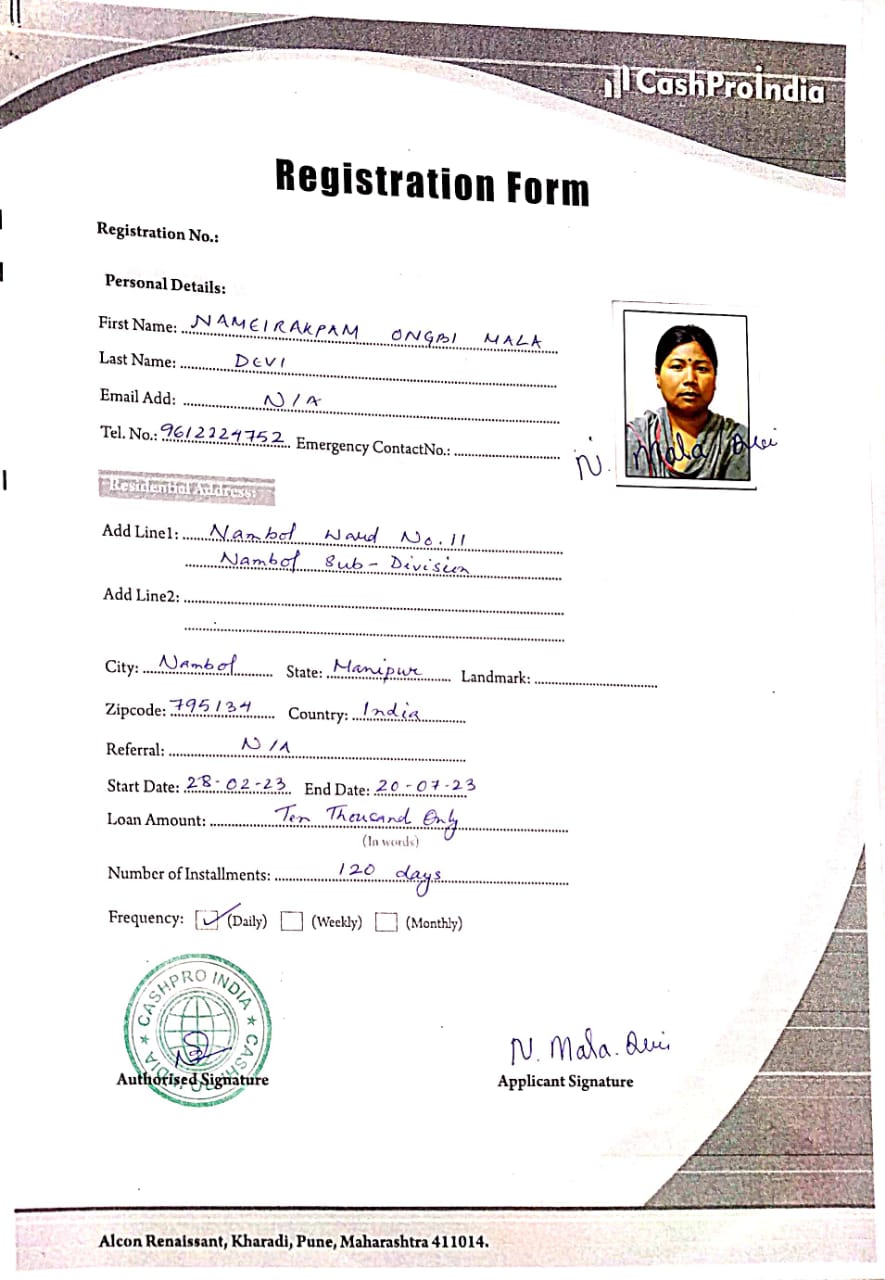 CashProIndia
Registration Form
Registration No.:
Personal Details:
First Name: NAMEIRAKPAM ONGBI MALA
Last Name: DEVI
Email Add: N/A
Tel. No.: 9612224752 Emergency ContactNo.:
N. Mala Devi
Residential Address:
Add Line1: Nambol Ward No. 11
Nambol Sub-Division
Add Line2:
City: Nambol State: Manipur Landmark:
Zipcode: 795134 Country: India
Referral: N/A
Start Date: 28-02-23 End Date: 20-07-23
Loan Amount: Ten Thousand Only
(In words)
Number of Installments: 120 days
Frequency: (Daily) (Weekly) (Monthly)
CASHPRO INDIA
N. Mala. Devi
Authorised Signature Applicant Signature
Alcon Renaissant, Kharadi, Pune, Maharashtra 411014.